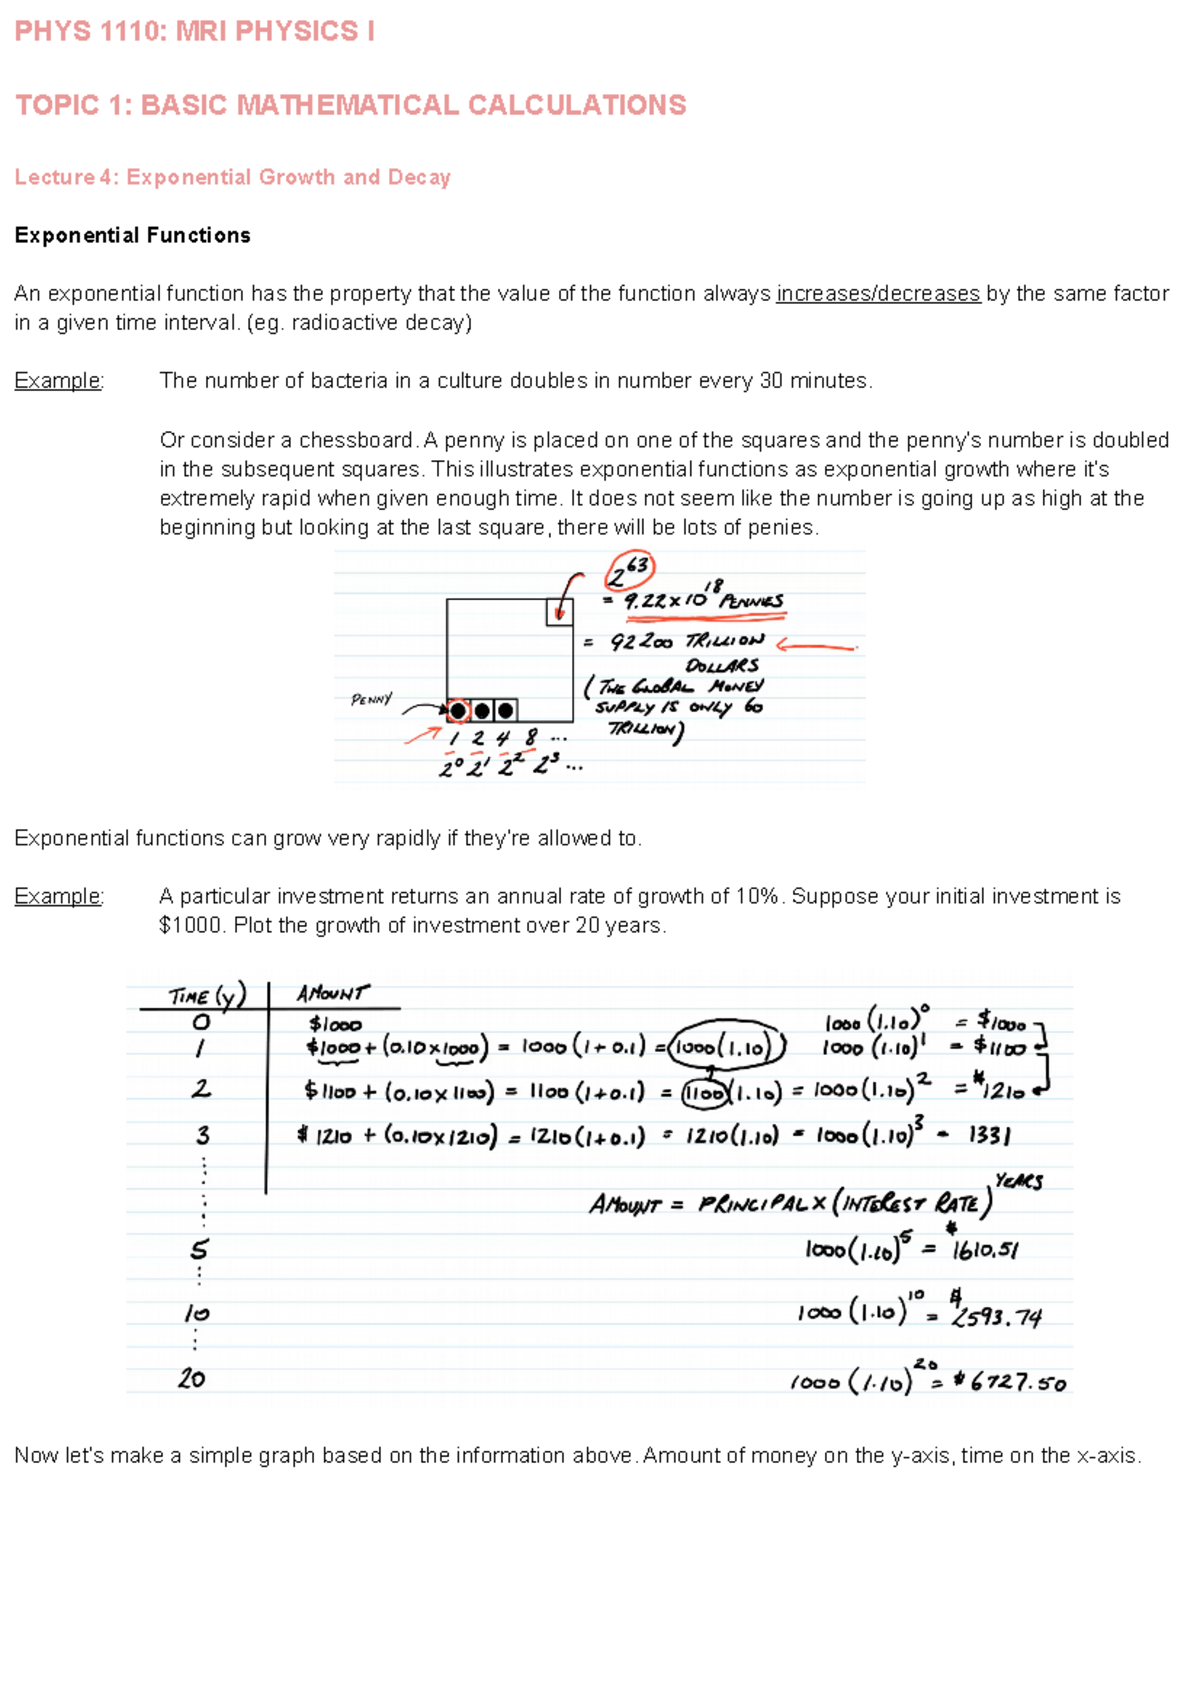 PHYS 1110: MRI PHYSICS I
TOPIC 1: BASIC MATHEMATICAL CALCULATIONS
Lecture 4: Exponential Growth and Decay
Exponential Functions
An exponential function has the property that the value of the function always increases/decreases by the same factor
in a given time interval. (eg. radioactive decay)
Example: The number of bacteria in a culture doubles in number every 30 minutes.
Or consider a chessboard. A penny is placed on one of the squares and the penny's number is doubled
in the subsequent squares. This illustrates exponential functions as exponential growth where it's
extremely rapid when given enough time. It does not seem like the number is going up as high at the
beginning but looking at the last square, there will be lots of penies.
2^63
= 9.22 x 10^18 PENNIES
= 92 200 TRILLION
DOLLARS
(THE GLOBAL MONEY
SUPPLY IS ONLY 60
TRILLION)
PENNY
1 2 4 8 ...
2^0 2^1 2^2 2^3 ...
Exponential functions can grow very rapidly if they're allowed to.
Example: A particular investment returns an annual rate of growth of 10%. Suppose your initial investment is
$1000. Plot the growth of investment over 20 years.
TIME (y) AMOUNT
0 $1000 1000 (1.10)^0 = $1000
1 $1000 + (0.10 x 1000) = 1000 (1 + 0.1) = 1000 (1.10) 1000 (1.10)^1 = $1100
2 $1100 + (0.10 x 1100) = 1100 (1+0.1) = 1100 (1.10) = 1000 (1.10)^2 = $1210
3 $1210 + (0.10 x 1210) = 1210 (1+0.1) = 1210 (1.10) = 1000 (1.10)^3 = 1331
AMOUNT = PRINCIPAL X (INTEREST RATE)^YEARS
5 1000 (1.10)^5 = $1610.51
10 1000 (1.10)^10 = $2593.74
20 1000 (1.10)^20 = $6727.50
Now let's make a simple graph based on the information above. Amount of money on the y-axis, time on the x-axis.